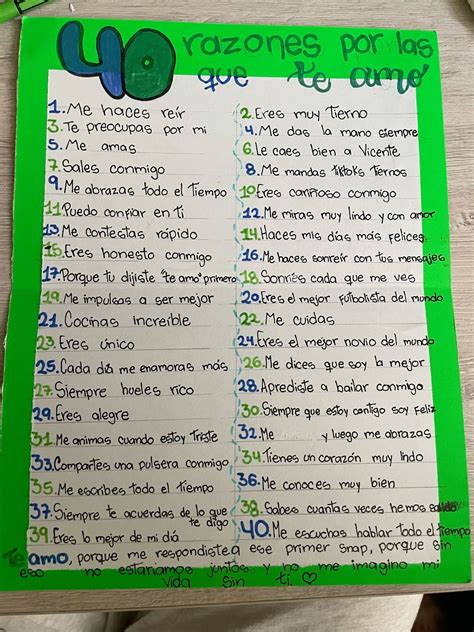 40 razones por las
que te amo
1. Me haces reír
2. Eres muy Tierno
3. Te preocupas por mi
4. Me das la mano siempre
5. Me amas
6. Le caes bien a Vicente
7. Sales conmigo
8. Me mandas tiktoks tiernos
9. Me abrazas todo el Tiempo
10. Eres cariñoso conmigo
11. Puedo confiar en ti
12. Me miras muy lindo y con amor
13. Me contestas rápido
14. Haces mis días más felices
15. Eres honesto conmigo
16. Me haces sonreír con tus mensajes
17. Porque tu dijiste "te amo" primero
18. Sonríes cada que me ves
19. Me impulsas a ser mejor
20. Eres el mejor futbolista del mundo
21. Cocinas increíble
22. Me cuidas
23. Eres único
24. Eres el mejor novio del mundo
25. Cada día me enamoras más
26. Me dices que soy la mejor
27. Siempre hueles rico
28. Aprendiste a bailar conmigo
29. Eres alegre
30. Siempre que estoy contigo soy Feliz
31. Me animas cuando estoy Triste
32. Me y luego me abrazas
33. Compartes una pulsera conmigo
34. Tienes un corazón muy lindo
35. Me escribes todo el tiempo
36. Me conoces muy bien
37. Siempre te acuerdas de lo que
te digo
38. Sabes cuantas veces hemos
39. Eres lo mejor de mi día
40. Me escuchas hablar todo el tiempo
Te amo, porque me respondiste a ese primer snap, porque sin
eso no estaríamos juntos y no me imagino mi
vida sin ti.